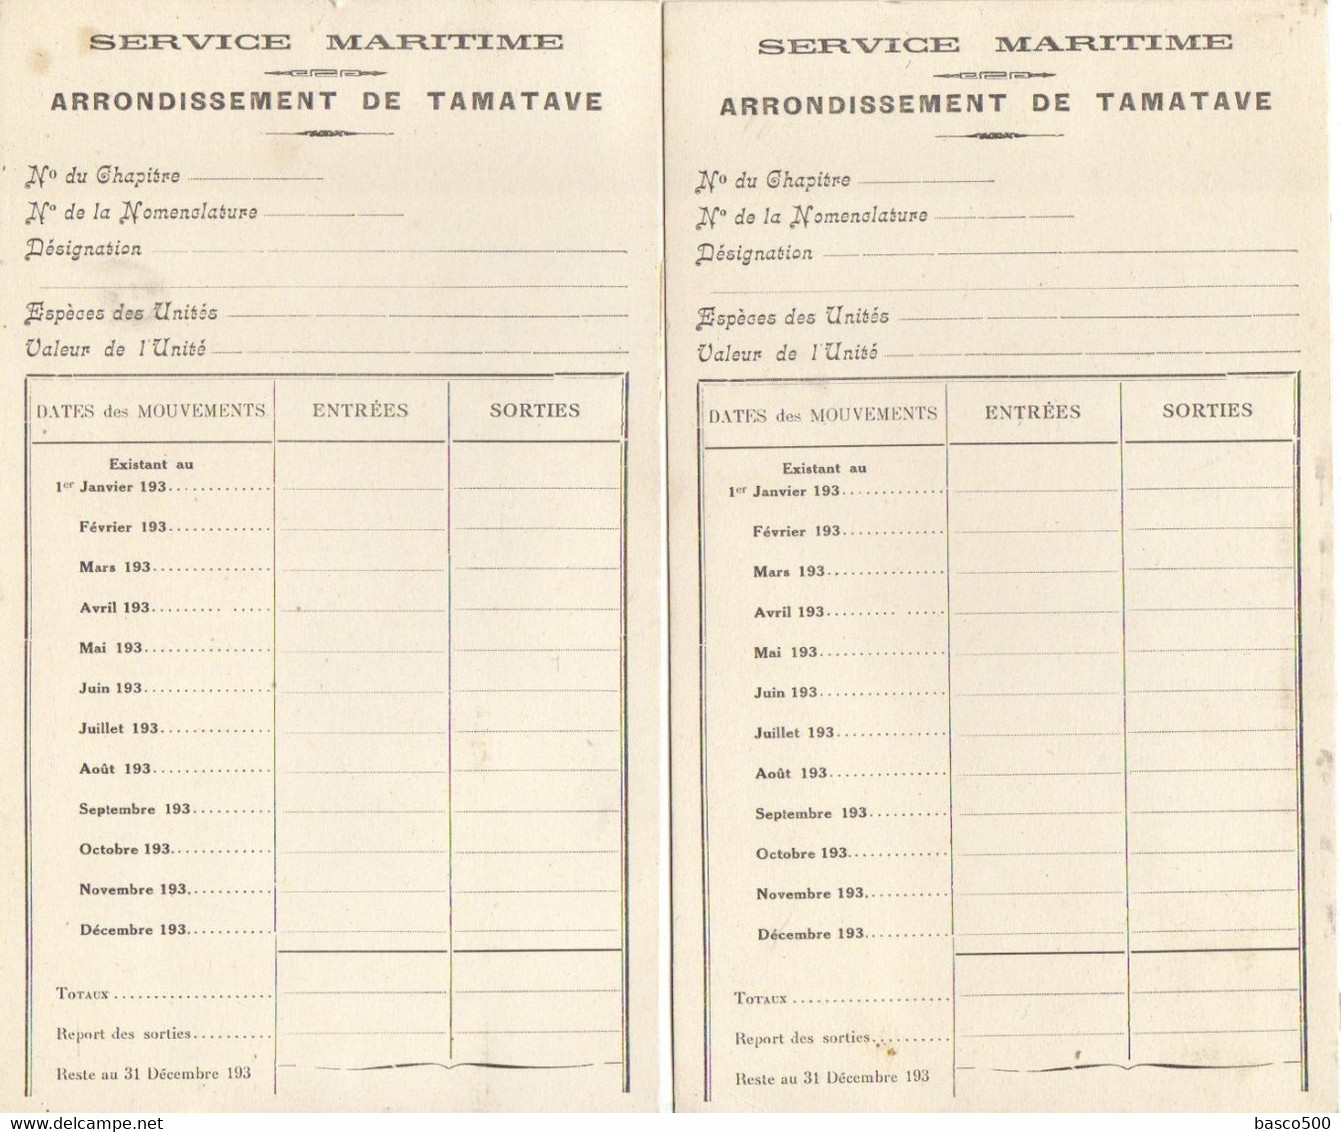 SERVICE MARITIME
ARRONDISSEMENT DE TAMATAVE
Nº du Chapitre
Nº de la Nomenclature
Désignation
Espèces des Unités
Valeur de l'Unité
DATES des MOUVEMENTS ENTRÉES SORTIES
Existant au
1er Janvier 193............
Février 193............
Mars 193............
Avril 193............
Mai 193............
Juin 193............
Juillet 193............
Août 193............
Septembre 193..........
Octobre 193............
Novembre 193..........
Décembre 193..........
TOTAUX ....................
Report des sorties..........
Reste au 31 Décembre 193
SERVICE MARITIME
ARRONDISSEMENT DE TAMATAVE
Nº du Chapitre
Nº de la Nomenclature
Désignation
Espèces des Unités
Valeur de l'Unité
DATES des MOUVEMENTS ENTRÉES SORTIES
Existant au
1er Janvier 193............
Février 193............
Mars 193............
Avril 193............
Mai 193............
Juin 193............
Juillet 193............
Août 193............
Septembre 193..........
Octobre 193............
Novembre 193..........
Décembre 193..........
TOTAUX ....................
Report des sorties..........
Reste au 31 Décembre 193
delcampe.net
basco500